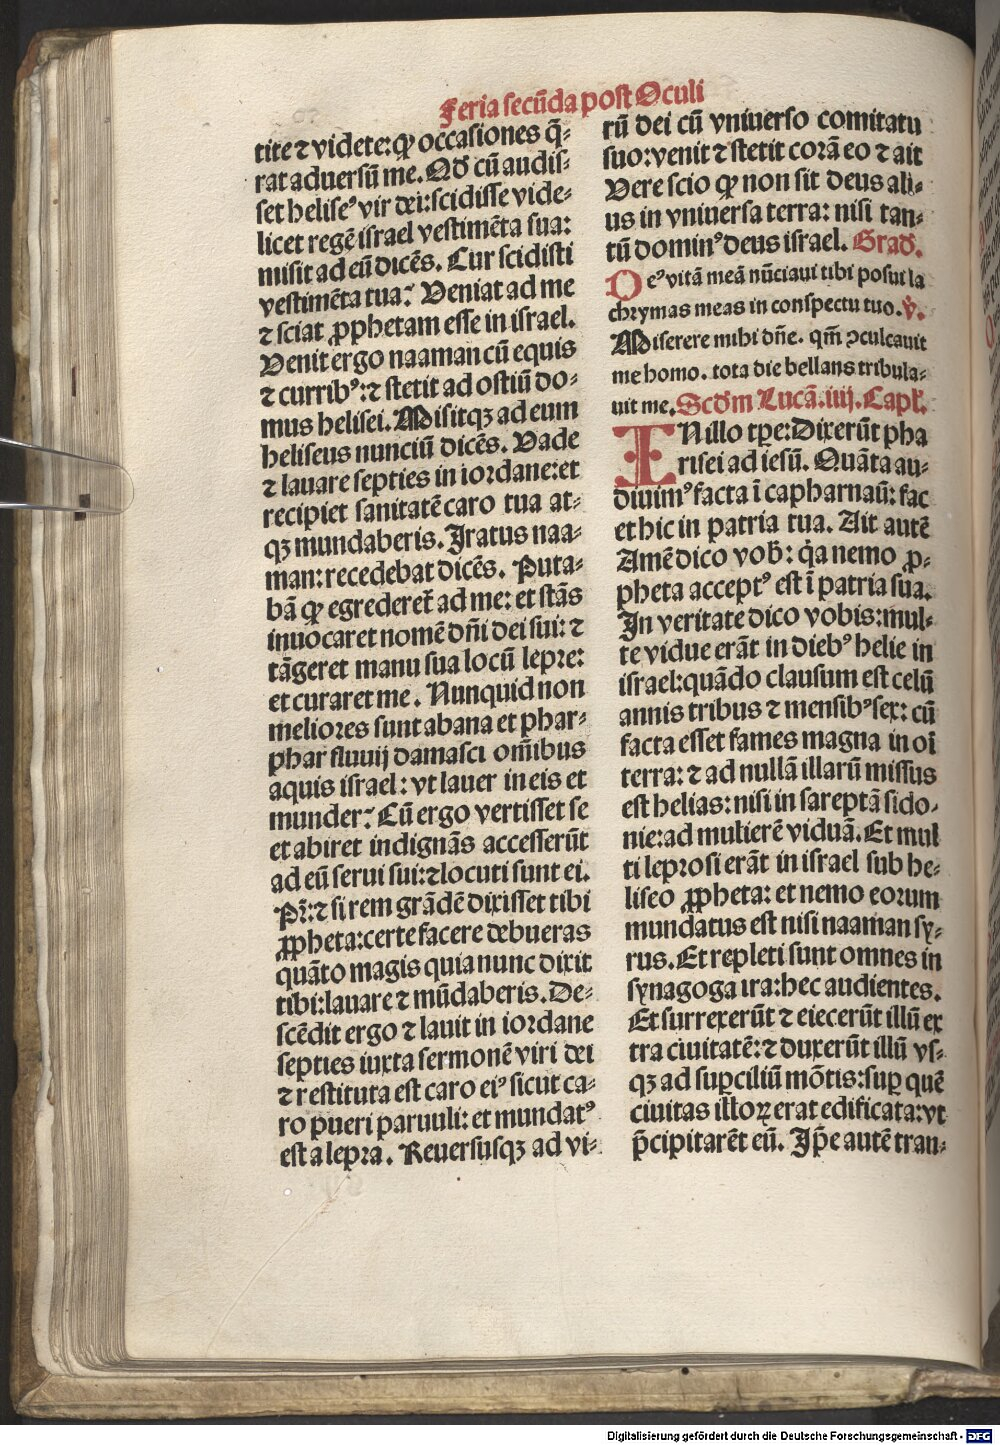 Feria secūda post Oculi
tite ⁊ videte: ꝙ occasiones q̄-
rat aduersū me. Qđ cū audis-
set heliseꝰ vir dei: scidisse vide-
licet regē israel vestimēta sua:
misit ad eū dicēs. Cur scidisti
vestimēta tua? Veniat ad me
⁊ sciat ꝓphetam esse in israel.
Venit ergo naaman cū equis
⁊ curribꝰ: ⁊ stetit ad ostiū do-
mus helisei. Misitqꝫ ad eum
heliseus nunciū dicēs. Vade
⁊ lauare septies in iordane: et
recipiet sanitatē caro tua at-
qꝫ mundaberis. Iratus naa-
man: recedebat dicēs. Puta-
bā ꝙ egrederet̄ ad me: et stās
inuocaret nomē dn̄i dei sui: ⁊
tāgeret manu sua locū lepre:
et curaret me. Nunquid non
meliores sunt abana et phar-
phar fluuij damasci om̄ibus
aquis israel: vt lauer in eis et
munder? Cū ergo vertisset se
et abiret indignās accesserūt
ad eū serui sui: ⁊ locuti sunt ei.
Pr̄: ⁊ si rem grādē dixisset tibi
ꝓpheta: certe facere debueras
quāto magis quia nunc dixit
tibi: lauare ⁊ mūdaberis. De-
scēdit ergo ⁊ lauit in iordane
septies iuxta sermonē viri dei
⁊ restituta est caro eiꝰ sicut ca-
ro pueri paruuli: et mundatꝰ
est a lepra. Reuersusqꝫ ad vi-
rū dei cū vniuerso comitatu
suo: venit ⁊ stetit corā eo ⁊ ait
Vere scio ꝙ non sit deus ali-
us in vniuersa terra: nisi tan-
tū dominꝰ deus israel. Građ.
Deꝰ vitā meā nūciaui tibi posui la
chrymas meas in conspectu tuo. ℣.
Miserere mihi dn̄e. qm̄ ꝯculcauit
me homo. tota die bellans tribula-
uit me. Scđm Lucā. iiij. Capł.
IN illo tp̄e: Dixerūt pha
risei ad iesū. Quāta au-
diuimꝰ facta ī capharnaū: fac
et hic in patria tua. Ait autē
Amē dico vob̄: q̇a nemo ꝓ-
pheta acceptꝰ est ī patria sua.
In veritate dico vobis: mul-
te vidue erāt in diebꝰ helie in
israel: quādo clausum est celū
annis tribus ⁊ mensibꝰ sex: cū
facta esset fames magna in oī
terra: ⁊ ad nullā illarū missus
est helias: nisi in sareptā sido-
nie: ad mulierē viduā. Et mul
ti leprosi erāt in israel sub he-
liseo ꝓpheta: et nemo eorum
mundatus est nisi naaman sy-
rus. Et repleti sunt omnes in
synagoga ira: hec audientes.
Et surrexerūt ⁊ eiecerūt illū ex
tra ciuitatē: ⁊ duxerūt illū vs-
qꝫ ad suꝑciliū mōtis: suꝑ quē
ciuitas illoꝝ erat edificata: vt
p̄cipitarēt eū. Ip̄e autē tran-
Digitalisierung gefördert durch die Deutsche Forschungsgemeinschaft - DFG